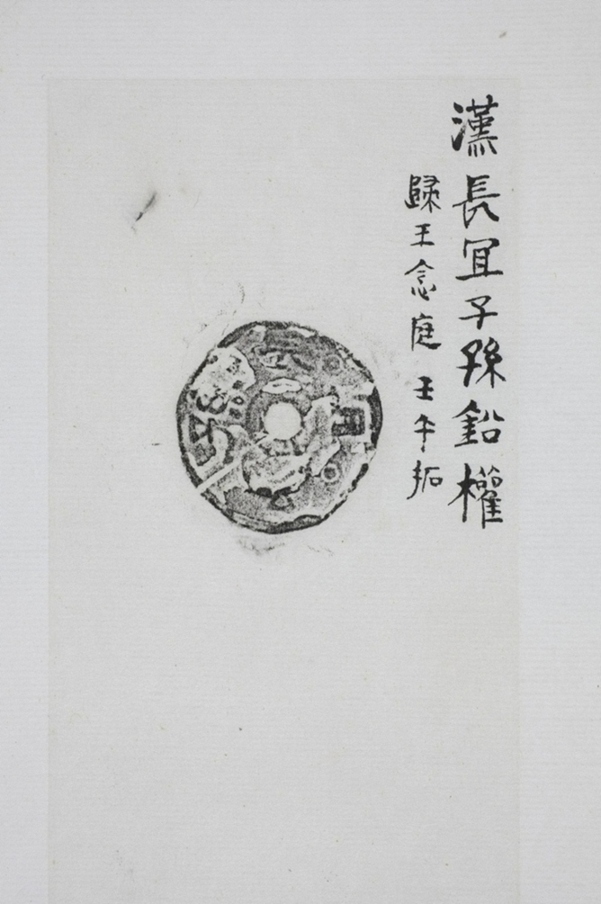 漢長宜子孫鉛權
歸王念庭 壬午拓